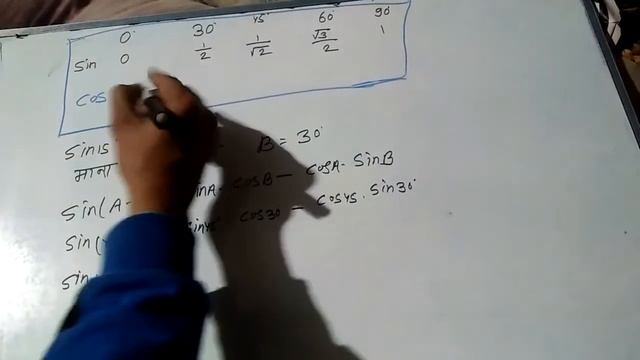 0° 30° 45° 60° 90°
sin 0 1/2 1/√2 √3/2 1
cos
sin15 B = 30°
माना
sin(A- sinA· cosB - cosA· sinB
sin( sin45 cos30 - cos45· sin30°
sin